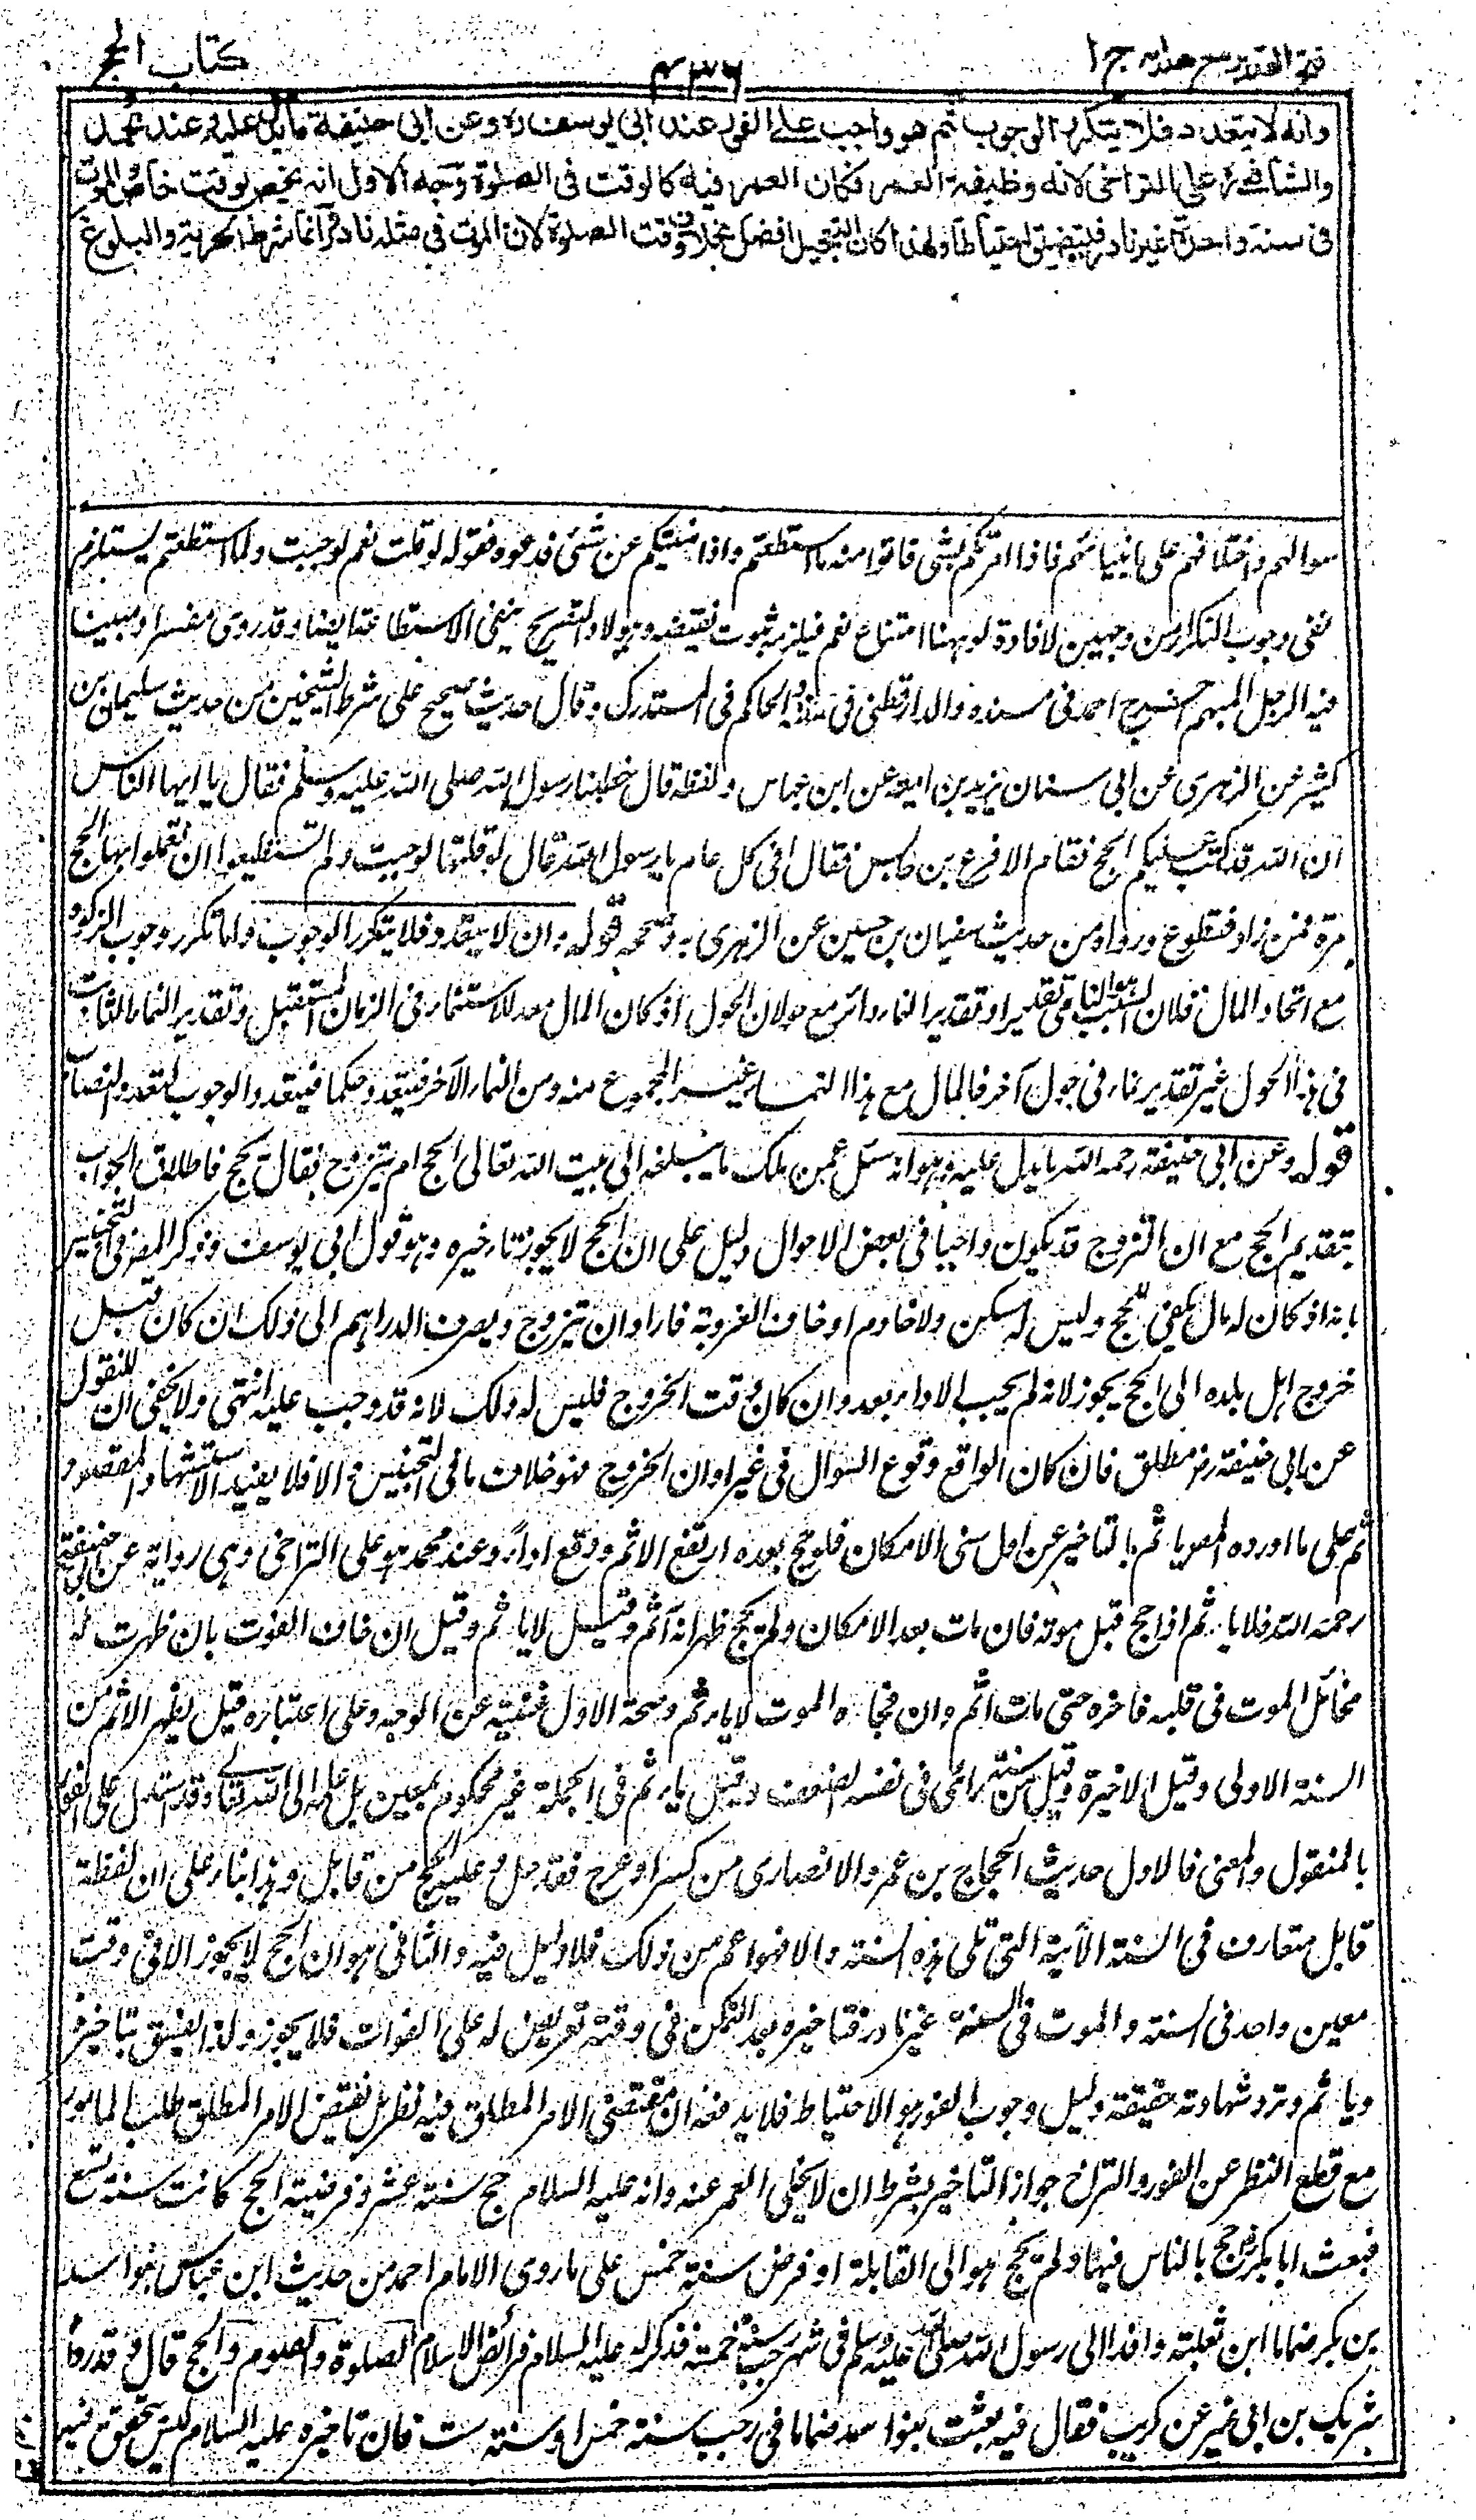 فتح القدير مع هدايه ج ١
٤٣٦
كتاب الحج
وانه لا يتعدد فلا يتكرر الوجوب ثم هو واجب على الفور عند ابى يوسف ره وعن ابى حنيفة ما يدل عليه وعند محمد
والشافعى على التراخى لانه وظيفة العمر فكان العمر فيه كالوقت فى الصلوة وجه الاول انه يختص بوقت خاص والموت
فى سنة واحدة غير نادر فيتضيق احتياطا ولهذا كان التعجيل افضل بخلاف وقت الصلوة لان الموت فى مثله نادر وآنما شرط الحرية والبلوغ
سوالهم واختلافهم على انبيائهم فاذا امرتكم بشئ فاتوا منه ما استطعتم واذا نهيتكم عن شئ فدعوه فقوله لو قلت نعم لوجبت ولما استطعتم يستلزم
نفى وجوب التكرار من وجهين لافادة لو ههنا امتناع نعم فيلزمه ثبوت نقيضه وهو لا والتصريح بنفى الاستطاعة ايضا وقد روى مفسرا ومبينا
فيه الرجل المبهم اخرج احمد فى مسنده والدارقطنى فى سننه والحاكم فى المستدرك وقال حديث صحيح على شرط الشيخين من حديث سليمان بن
كثير عن الزهرى عن ابى سنان يزيد بن امية عن ابن عباس ولفظه قال خطبنا رسول الله صلى الله عليه وسلم فقال يا ايها الناس
ان الله قد كتب عليكم الحج فقام الاقرع بن حابس فقال افى كل عام يا رسول الله قال لو قلتها لوجبت ولم تستطيعوا ان تعملوا بها الحج
مرة فمن زاد فتطوع ورواه من حديث سفيان بن حسين عن الزهرى به وصححه قوله وان لا يتعدد فلا يتكرر الوجوب واما تكرر وجوب الزكوة
مع اتحاد المال فلان السبب هو النامى تقديرا وتقدير النماء دائر مع حولان الحول اذ كان المال معد للاستنماء فى الزمان المستقبل وتقدير النماء الثابت
فى هذا الحول غير تقدير نماء فى حول آخر فالمال مع هذا النماء غير المجموع منه ومن النماء الآخر فيتعدد حكما فيتعدد الوجوب لتعدد النصاب
قوله وعن ابى حنيفة رحمه الله ما يدل عليه وهو انه سئل عمن ملك ما يبلغه الى بيت الله تعالى الحج ام يتزوج فقال يحج فاطلاق الجواب
بتقديم الحج مع ان التزوج قد يكون واجبا فى بعض الاحوال دليل على ان الحج لا يجوز تاخيره وهو قول ابى يوسف وذكر المصنف فى التجنيس
بانه اذ كان له مال يكفى للحج وليس له مسكن ولا خادم او خاف العزوبة فاراد ان يتزوج ويصرف الدراهم الى ذلك ان كان قبل
خروج اهل بلده الى الحج يجوز لانه لم يجب الاداء بعد وان كان وقت الخروج فليس له ذلك لانه قد وجب عليه انتهى ولا يخفى ان المنقول
عن ابى حنيفة رض مطلق فان كان الواقع وقوع السوال فى غير اوان الخروج فهو خلاف ما فى التجنيس والا فلا يفيد الاستشهاد المقصود
ثم على ما اورده المص ياثم بالتاخير عن اول سنى الامكان فلو حج بعده ارتفع الاثم ووقع اداءً وعند محمد هو على التراخى وهى رواية عن ابى حنيفة
رحمه الله فلا ياثم اذا حج قبل موته فان مات بعد الامكان ولم يحج ظهر انه آثم وقيل لا ياثم وقيل ان خاف الفوت بان ظهرت له
مخائل الموت فى قلبه فاخره حتى مات اثم وان فجاءه الموت لا ياثم وصحة الاول غنية عن الوجه وعلى اعتباره قيل يظهر الاثم من
السنة الاولى وقيل الاخيرة وقيل من سنة رأى فى نفسه الضعف وقيل ياثم فى الجملة غير محكوم بمعين بل علمه الى الله تعالى وقد استدل على الفور
بالمنقول والمعنى فالاول حديث الحجاج بن عمرو الانصارى من كسر او عرج فقد حل وعليه الحج من قابل وهذا بناء على ان لفظة
قابل متعارف فى السنة الآتية التى تلى هذه السنة والا فهو اعم من ذلك فلا دليل فيه والثانى هو ان الحج لا يجوز الا فى وقت
معين واحد فى السنة والموت فى السنة غير نادر فتاخيره بعد التمكن فى وقته تعريض له على الفوات فلا يجوز ولذا يفسق بتاخيره
وياثم وترد شهادته حقيقة دليل وجوب الفور هو الاحتياط فلا يدفعه ان مقتضى الامر المطلق فيه نظر بل نقيض الامر المطلق طلب المامور
مع قطع النظر عن الفور والتراخ جواز التاخير بشرط ان لا يخلى العمر عنه وانه عليه السلام حج سنة عشر وفرضية الحج كانت سنة تسع
فبعث ابا بكر رض حج بالناس فيها ولم يحج هو الى القابلة او فرض سنة خمس على ما روى الامام احمد من حديث ابن عباس بنو اسد
بن بكر ضماما ابن ثعلبة وافدا الى رسول الله صلى الله عليه وسلم فى شهر رجب سنة خمسة فذكر له عليه السلام فرائض الاسلام الصلوة والصوم والحج قال و قد رواه
شريك بن ابى نمير عن كريب فقال فيه بعثت بنو اسعد ضماما فى رجب سنة خمس او سنة ست فان تاخيره عليه السلام ليس يتحقق فيه